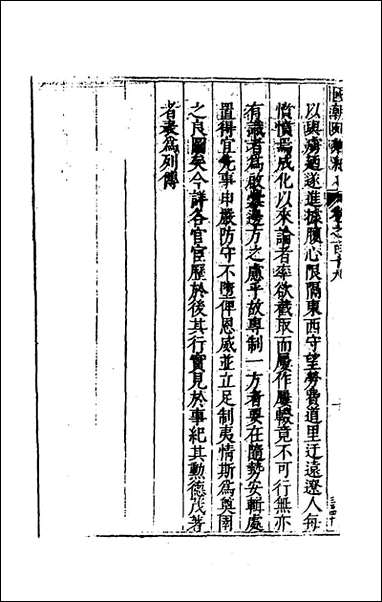 國朝典彙卷之一百十九
以與虜廼遂進據腹心限隔東西守望勞費道里迂遠遼人每
憤憤焉成化以來論者率欲截取而屢作屢輟竟不可行無亦
有識者為啟釁邊方之慮乎故專制一方者要在隨勢安輯處
置得宜先事申嚴防守不墮俾恩威並立足制夷情斯為輿圉
之良圖矣今詳各官宦歷於後其行實見於事紀其勲德茂著
者表為列傳